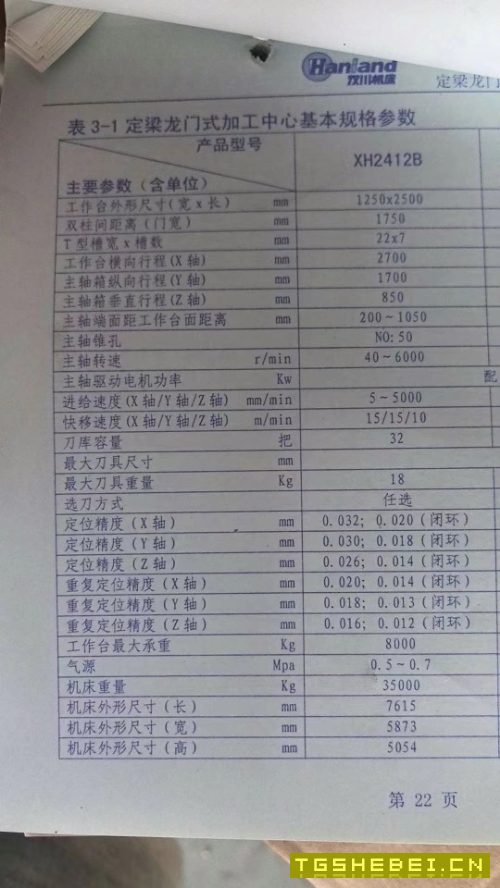 Hanland
汉川机床
定梁龙门
表 3-1 定梁龙门式加工中心基本规格参数
产品型号
XH2412B
主要参数（含单位）
工作台外形尺寸(宽 x 长) mm 1250x2500
双柱间距离(门宽) mm 1750
T 型槽宽 x 槽数 mm 22x7
工作台横向行程(X 轴) mm 2700
主轴箱纵向行程(Y 轴) mm 1700
主轴箱垂直行程(Z 轴) mm 850
主轴端面距工作台面距离 mm 200～1050
主轴锥孔 NO: 50
主轴转速 r/min 40～6000
主轴驱动电机功率 Kw 配
进给速度(X 轴/Y 轴/Z 轴) mm/min 5～5000
快移速度(X 轴/Y 轴/Z 轴) m/min 15/15/10
刀库容量 把 32
最大刀具尺寸 mm
最大刀具重量 Kg 18
选刀方式 任选
定位精度(X 轴) mm 0.032; 0.020(闭环)
定位精度(Y 轴) mm 0.030; 0.018(闭环)
定位精度(Z 轴) mm 0.026; 0.014(闭环)
重复定位精度(X 轴) mm 0.020; 0.014(闭环)
重复定位精度(Y 轴) mm 0.018; 0.013(闭环)
重复定位精度(Z 轴) mm 0.016; 0.012(闭环)
工作台最大承重 Kg 8000
气源 Mpa 0.5～0.7
机床重量 Kg 35000
机床外形尺寸(长) mm 7615
机床外形尺寸(宽) mm 5873
机床外形尺寸(高) mm 5054
第 22 页
TGSHEBEI.CN